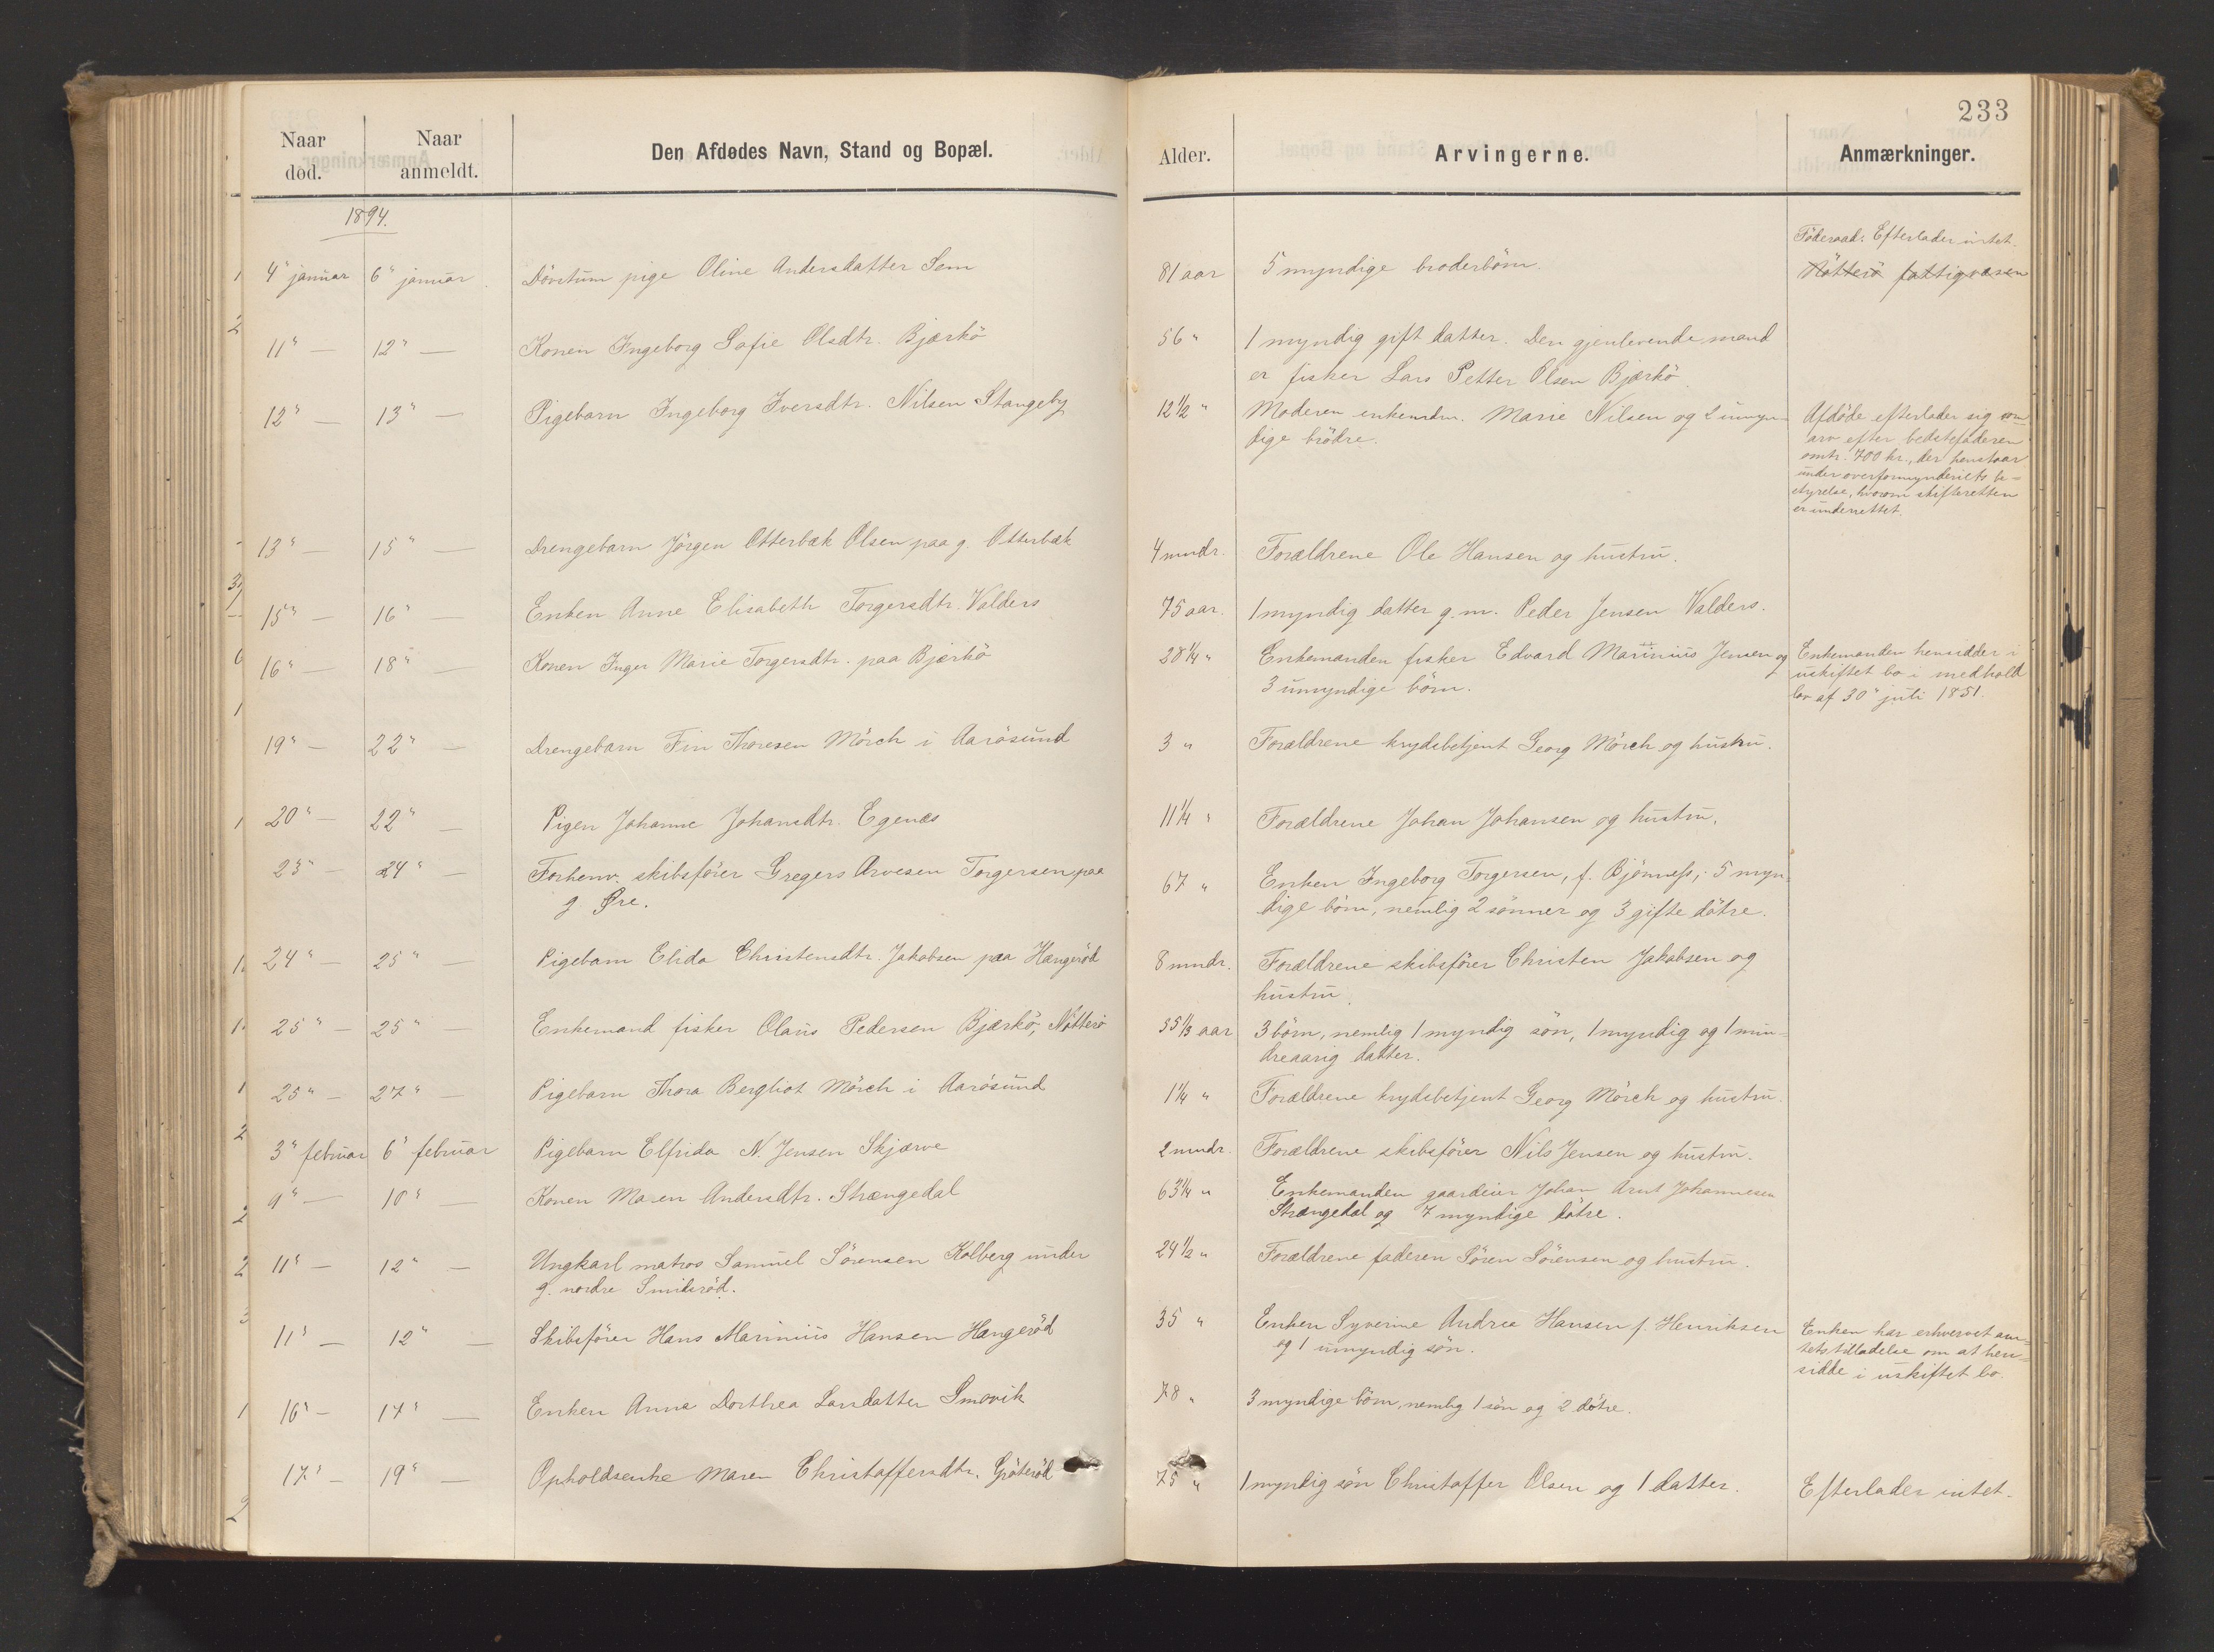 233
Naar død. Naar anmeldt. Den Afdødes Navn, Stand og Bopæl. Alder. Arvingerne. Anmærkninger.
1894.
4" januar 6" januar Dövstum pige Oline Andersdatter Sem 81 aar 5 myndige broderbörn. Föderaad: Efterlader intet.
Nötterö fattigvæsen
11" — 12" — Konen Ingeborg Sofie Olsdtr. Bjærkö 56 " 1 myndig gift datter. Den gjenlevende mand
er fisker Lars Petter Olsen Bjærkö.
12" 13" — Pigebarn Ingeborg Iversdtr. Nilsen Stangeby 12 1/2 " Moderen enkemdm. Marie Nilsen og 2 umyn-
dige brödre.
Afdöde efterlader sig som
arv efter bedstefaderen
omtr. 700 kr., der henstaar
under overformynderiets be-
styrelse, hvorom skifteretten
er underrettet.
13" — 15" — Drengebarn Jörgen Otterbæk Olsen paa g. Otterbæk 4 mndr. Forældrene Ole Hansen og hustru.
15" — 16" — Enken Anne Elisabeth Torgersdtr. Valders 75 aar. 1 myndig datter g. m. Peder Jensen Valders.
16" — 18" — Konen Inger Marie Torgersdtr. paa Bjærkö 28 1/4 " Enkemanden fisker Edvard Marinius Jensen og
3 umyndige börn.
Enkemanden hensidder i
uskiftet bo i medhold
lov af 30" juli 1851.
19" — 22" — Drengebarn Fin Thoresen Mörch i Aarösund 3 " Forældrene krydsbetjent Georg Mörch og hustru.
20" — 22" — Pigen Johanne Johansdtr. Egenæs 11 1/4 " Forældrene Johan Johansen og hustru.
23" — 24" — Forhenv. skibsförer Gregers Arvesen Torgersen paa
g Øre.
67 " Enken Ingeborg Torgersen, f. Bjönness, 5 myn-
dige börn, nemlig 2 sönner og 3 gifte dötre.
24" — 25" — Pigebarn Elida Christensdtr. Jakobsen paa Hængeröd 8 mndr. Forældrene skibsförer Christen Jakobsen og
hustru.
25" — 25" — Enkemand fisker Olaus Pedersen Bjærkö, Nötterö 55 1/3 aar 3 börn, nemlig 1 myndig sön, 1 myndig og 1 min-
dreaarig datter.
25" — 27" — Pigebarn Thora Bergliot Mörch i Aarösund 1 1/4 " Forældrene krydsbetjent Georg Mörch og hustru.
3" februar 6" februar Pigebarn Elfrida N. Jensen Skjærve 2 mndr. Forældrene skibsförer Nils Jensen og hustru.
9" — 10" — Konen Maren Andersdtr. Strængedal 63 1/4 " Enkemanden gaardeier Johan Arnt Johannesen
Strængedal og 7 myndige dötre.
11" — 12" — Ungkarl matros Samuel Sörensen Kolberg under
g. nordre Smideröd.
24 1/2 " Forældrene faderen Sören Sörensen og hustru.
11" — 12" — Skibsförer Hans Marinius Hansen Hængeröd 35 " Enken Syverine Andrea Hansen f. Henriksen
og 1 umyndig sön.
Enken har erhvervet am-
tets tilladelse om at hen-
sidde i uskiftet bo.
16" — 17" — Enken Anna Dorthea Larsdatter Smovik 78 " 3 myndige börn, nemlig 1 sön og 2 dötre.
17" — 19" — Opholdsenke Maren Christoffersdtr. Gröteröd 75 " 1 myndig sön Christoffer Olsen og 1 datter. Efterlader intet.